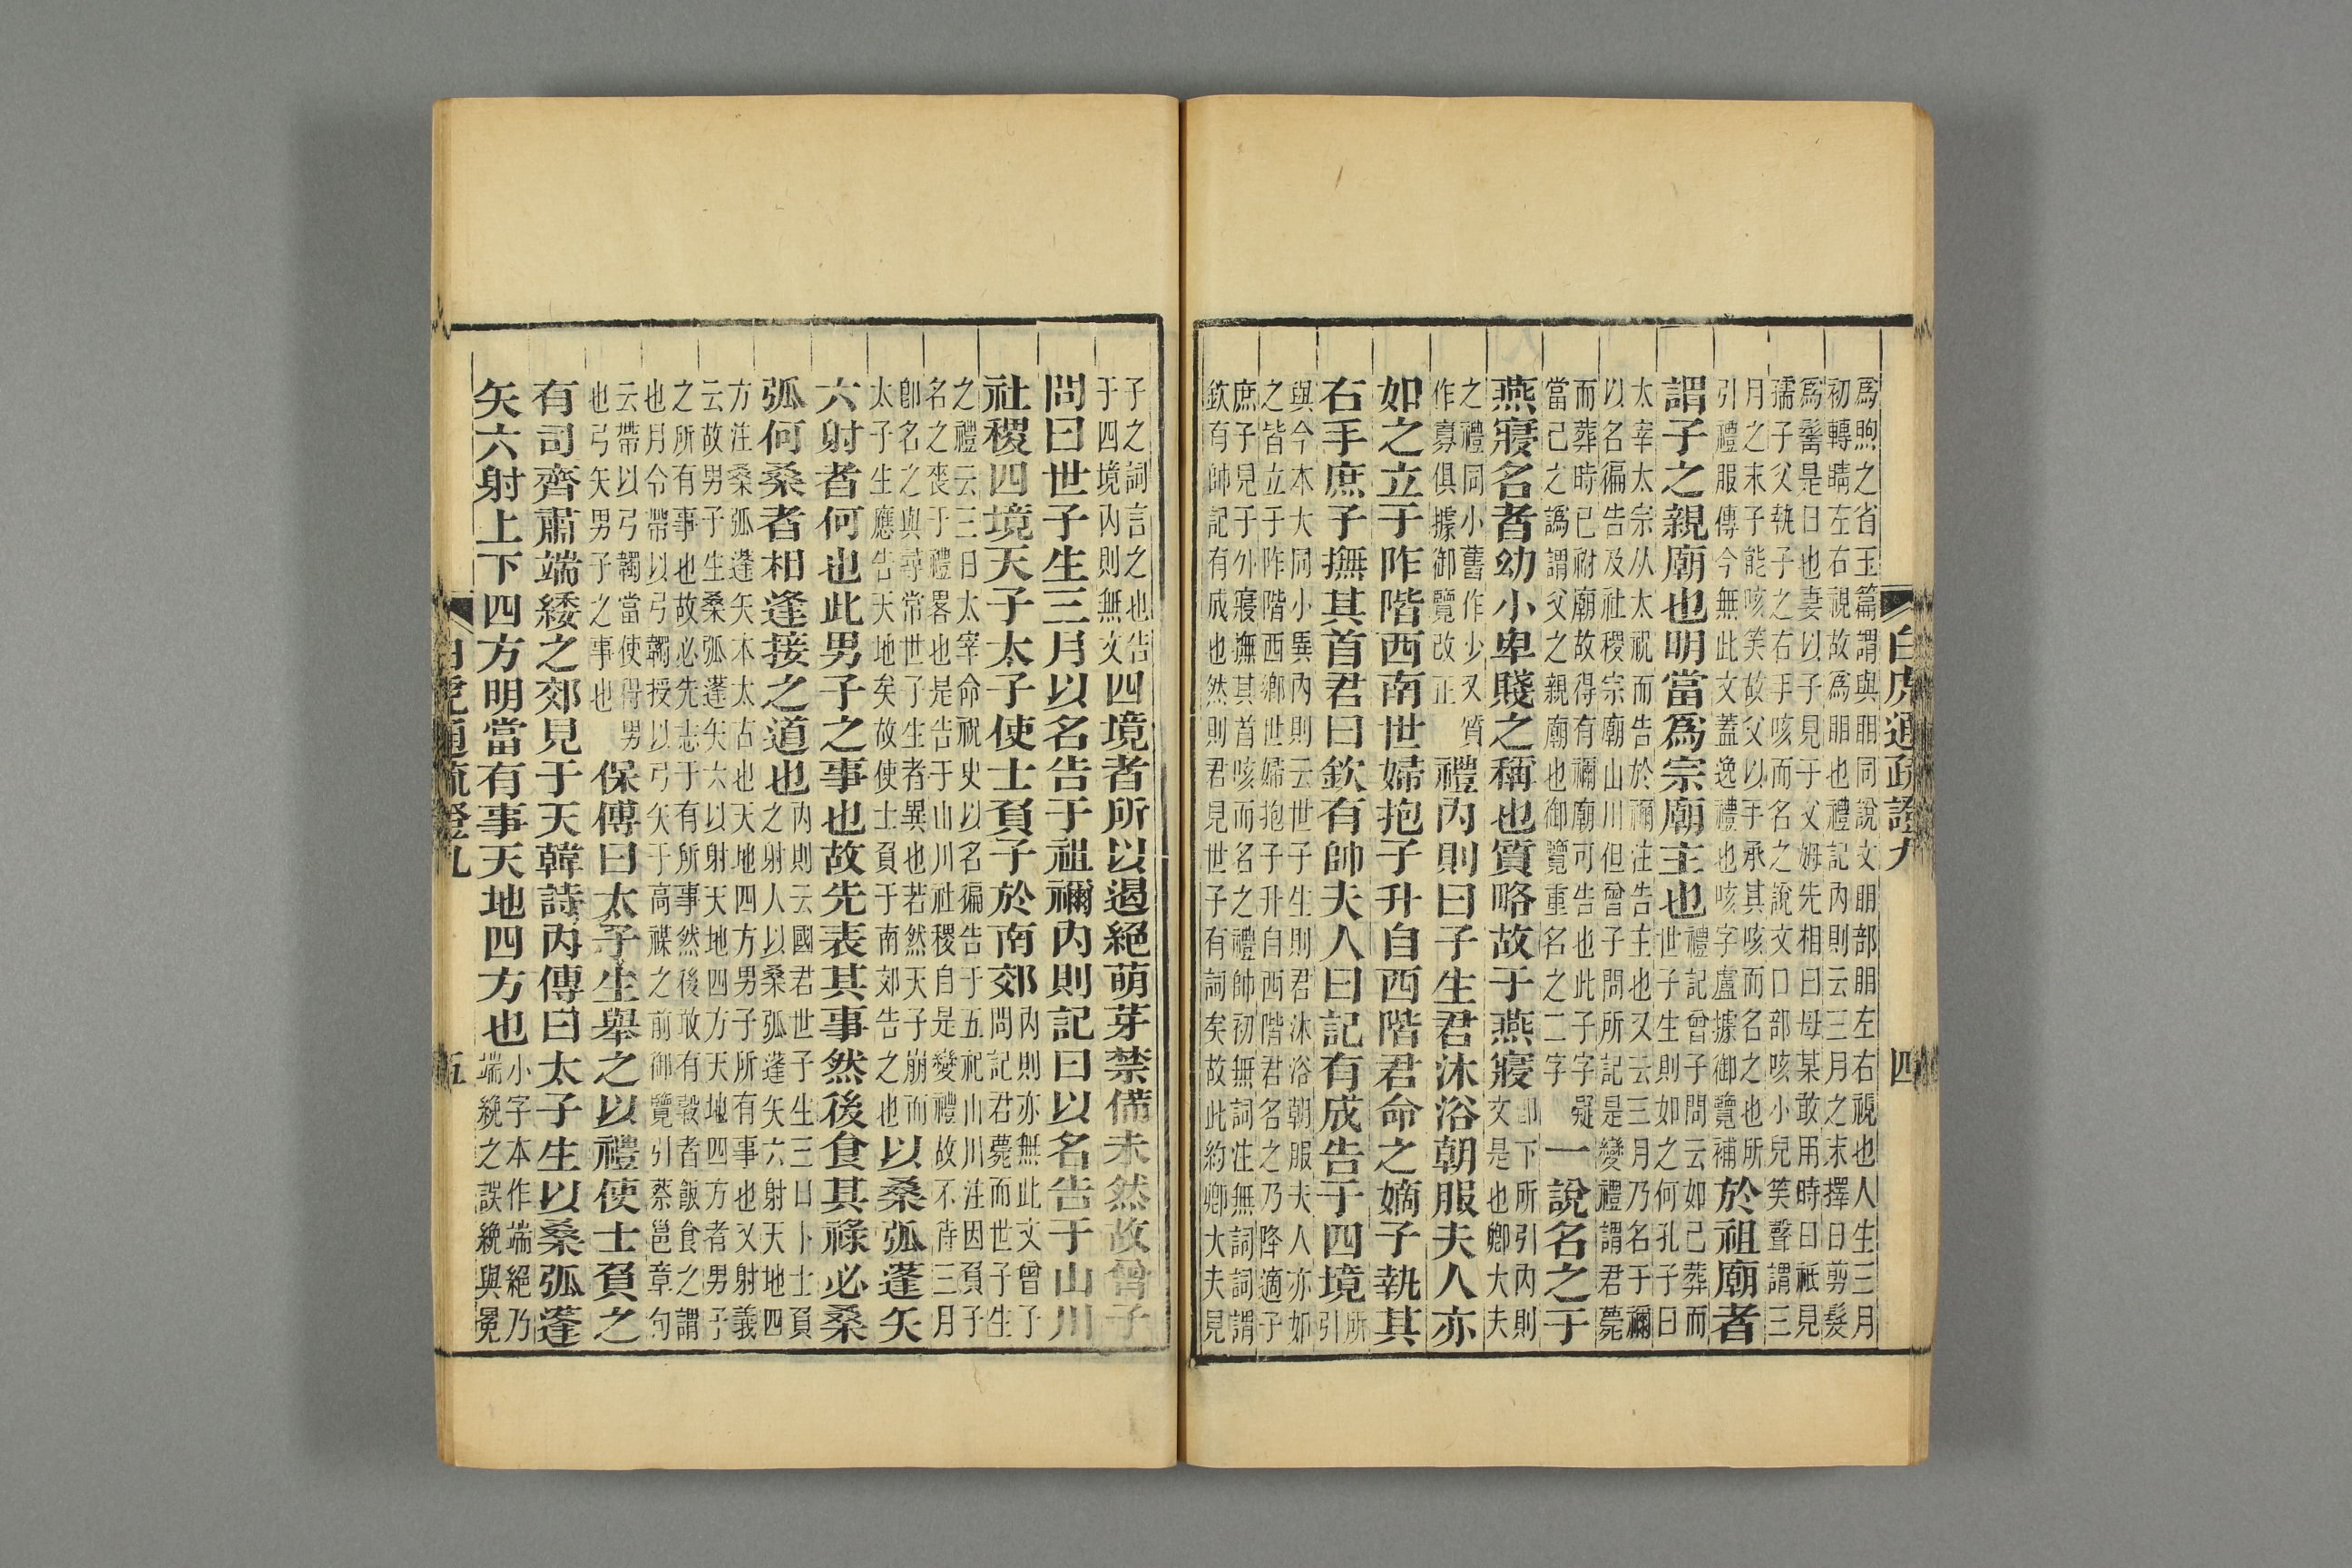 白虎通疏證九
四
爲煦之省玉篇謂與䀏同說文䀏部䀏左右視也人生三月
初轉睛左右視故爲䀏也禮記內則云三月之末擇日剪髮
爲鬌是日也妻以子見于父姆先相曰母某敢用時日祇見
孺子父執子之右手咳而名之說文口部咳小兒笑聲謂三
月之末子能咳笑故父以手承其咳而名之也所
引禮服傳今無此文蓋逸禮也咳字盧據御覽補於祖廟者
謂子之親廟也明當爲宗廟主也禮記曾子問云如已葬而
世子生則如之何孔子曰
太宰太宗从太祝而告於禰注告主也又云三月乃名于禰
以名徧告及社稷宗廟山川但曾子問所記是變禮謂君薨
而葬時已祔廟故得有禰廟可告也此子字疑
當己之譌謂父之親廟也御覽重名之二字一說名之于
燕寢名者幼小卑賤之稱也質略故于燕寢卽下所引內則
文是也卿大夫
之禮同小舊作少又質
作寡俱據御覽改正禮內則曰子生君沐浴朝服夫人亦
如之立于阼階西南世婦抱子升自西階君命之嫡子執其
右手庶子撫其首君曰欽有帥夫人曰記有成告于四境所
引
與今本大同小異內則云世子生則君沐浴朝服夫人亦如
之皆立于阼階西鄉世婦抱子升自西階君名之乃降適子
庶子見于外寢撫其首咳而名之禮帥初無詞注無詞詞謂
欽有帥記有成也然則君見世子有詞矣故此約卿大夫見
子之詞言之也告
于四境內則無文四境者所以遏絕萌芽禁備未然故曾子
問曰世子生三月以名告于祖禰內則記曰以名告于山川
社稷四境天子太子使士負子於南郊內則亦無此文曾子
問記君薨而世子生
之禮云三日太宰命祝史以名徧告于五祀山川注因負子
名之喪于禮畧也是告于山川社稷自是變禮故不待三月
卽名之與尋常世了生者異也若然天子崩而
太子生應告天地矣故使士負于南郊告之也以桑弧蓬矢
六射者何也此男子之事也故先表其事然後食其祿必桑
弧何桑者相逢接之道也內則云國君世子生三日卜士負
之射人以桑弧蓬矢六射天地四
方注桑弧蓬矢本太古也天地四方男子所有事也又射義
云故男子生桑弧蓬矢六以射天地四方天地四方者男子
之所有事也故必先志于有所事然後敢有穀者飯食之謂
也月令帶以弓韣授以弓矢于高禖之前御覽引蔡邕章句
云帶以弓韣當使得男
也弓矢男子之事也保傅曰太子生舉之以禮使士負之
有司齊肅端緌之郊見于天韓詩內傳曰太子生以桑弧蓬
矢六射上下四方明當有事天地四方也小字本作端絕乃
端絻之誤絻與冕
五